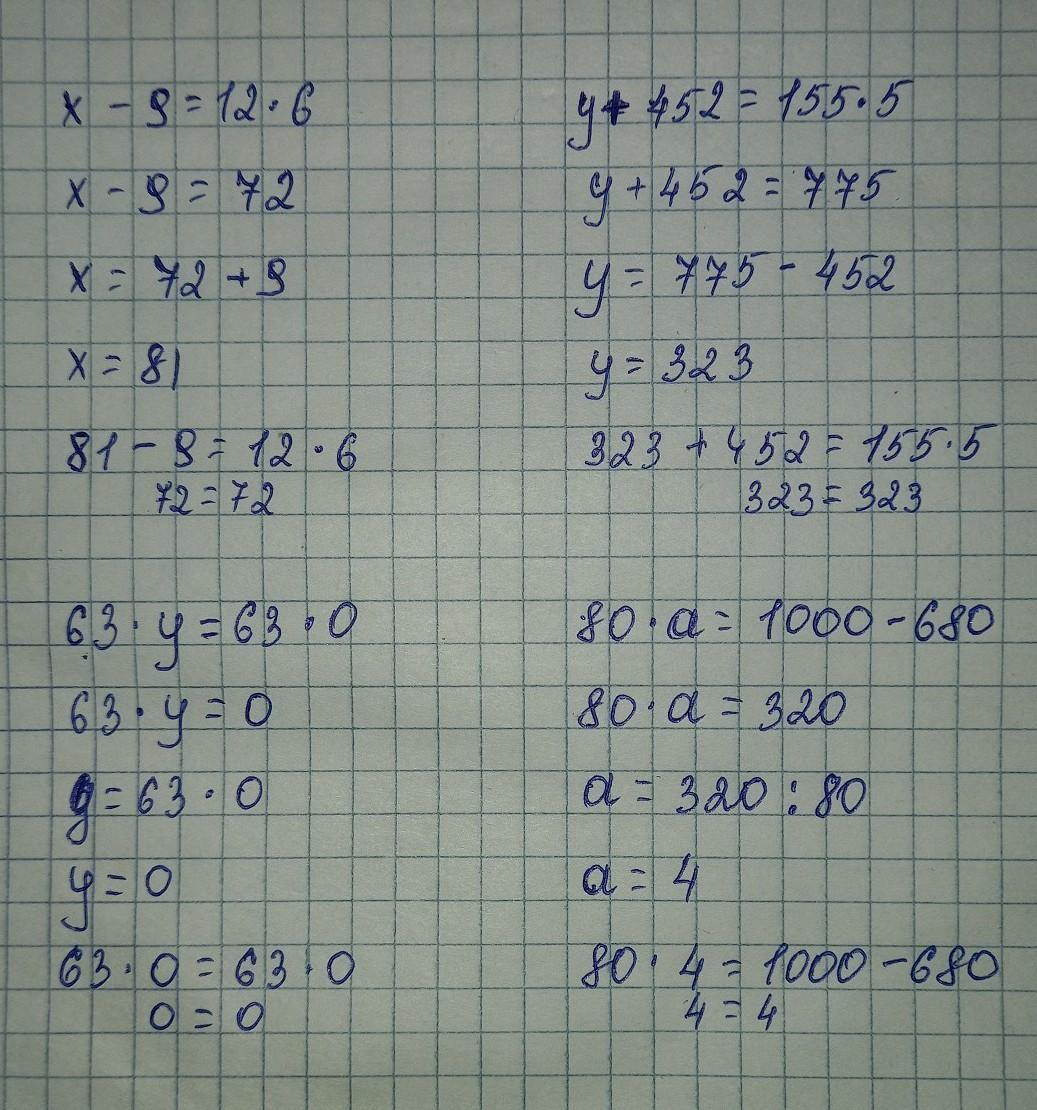 x - 9 = 12 · 6
x - 9 = 72
x = 72 + 9
x = 81
81 - 9 = 12 · 6
72 = 72
y + 452 = 155 · 5
y + 452 = 775
y = 775 - 452
y = 323
323 + 452 = 155 · 5
323 = 323
63 · y = 63 · 0
63 · y = 0
y = 63 · 0
y = 0
63 · 0 = 63 · 0
0 = 0
80 · a = 1000 - 680
80 · a = 320
a = 320 : 80
a = 4
80 · 4 = 1000 - 680
4 = 4